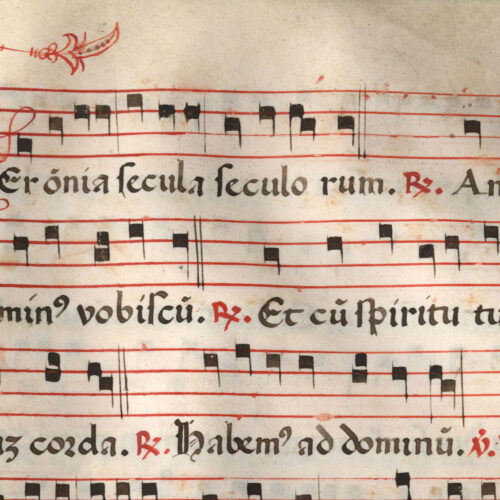 Er õnia ſecula ſeculo rum. ℟. Am
minꝰ vobiſcũ. ℟. Et cũ ſpiritu tu
corda. ℟. Habemꝰ ad dominũ. ℣.